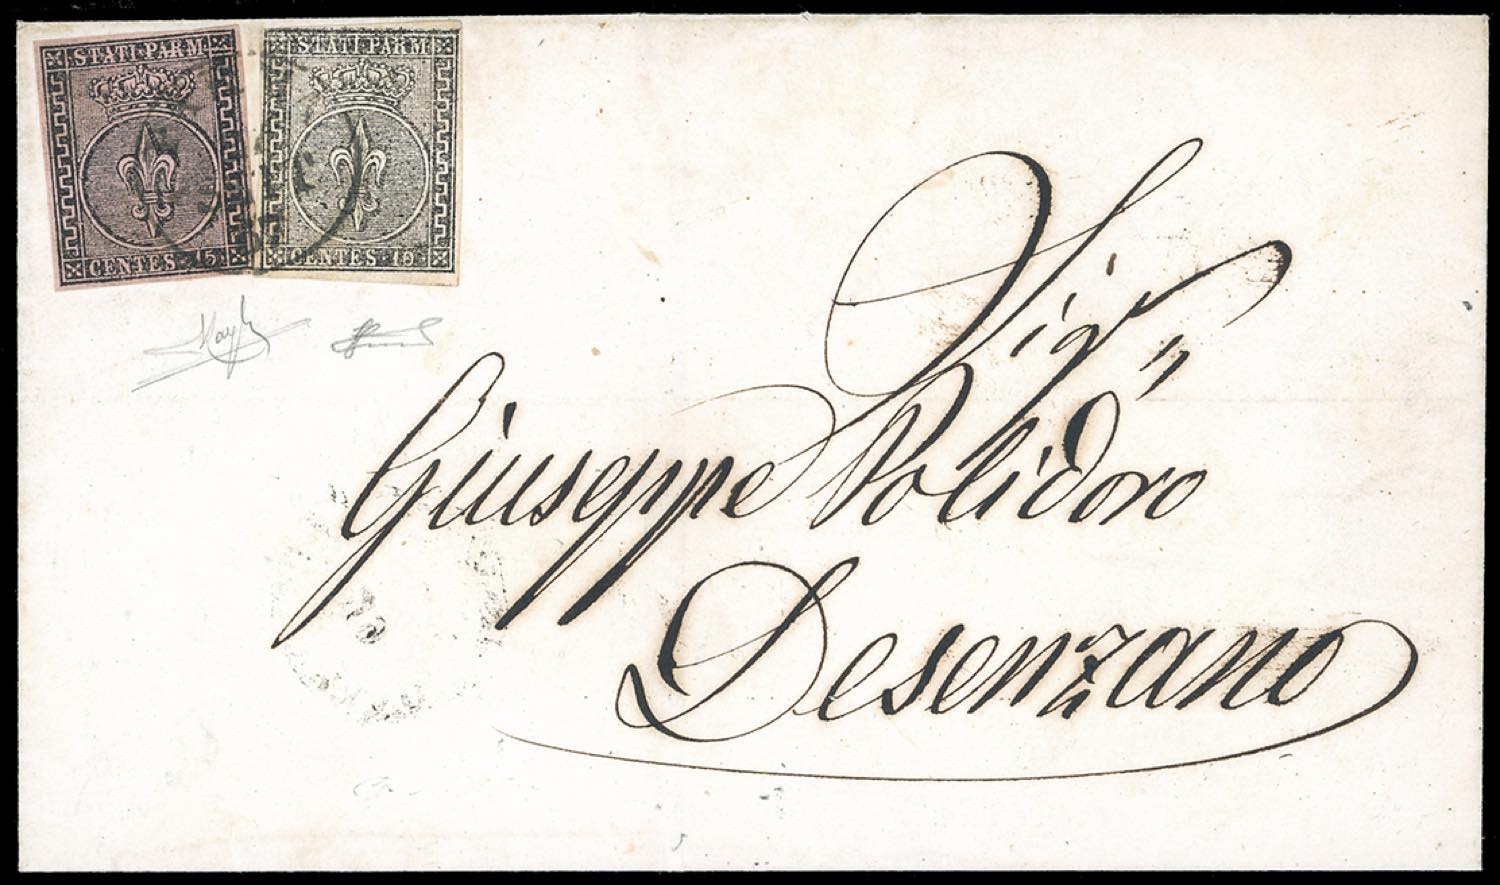 STATI PARM
CENTES. 15
STATI PARM
CENTES. 10
Sigr
Giuseppe Polidoro
Desenzano